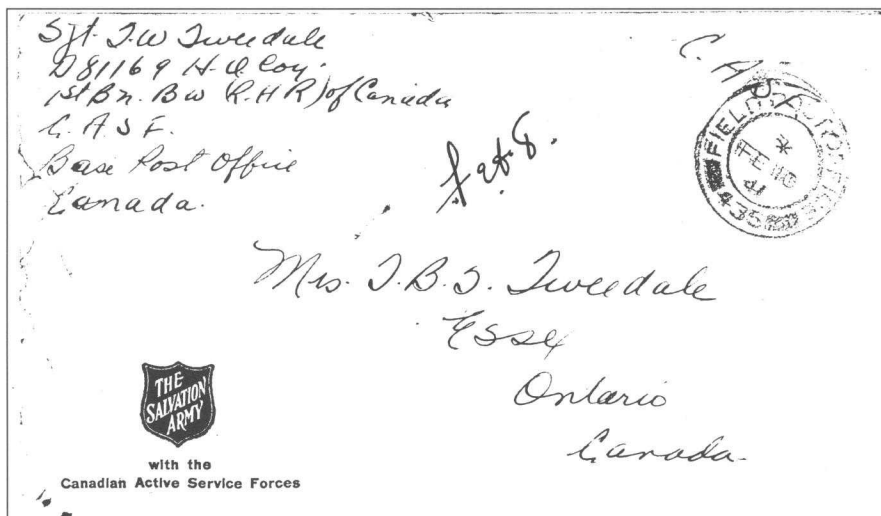 Sgt. T.W Tweedale
D81169 H.Q. Coy.
1st Bn. B W (R.H.R) of Canada
C.A.S.F.
Base Post Office
Canada.
C. A
FIELD POST OFFICE
FE 10
41
435
Feb 8.
Mrs. T.B.T. Tweedale
Essex
Ontario
Canada.
THE
SALVATION
ARMY
with the
Canadian Active Service Forces